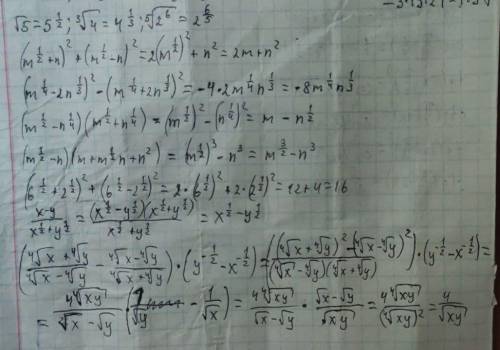 √5=5^{1/2}; ∛4=4^{1/3}; ⁵√2⁶=2^{6/5}
(m^{1/2}+n)²+(m^{1/2}-n)²=2(m^{1/2})²+n²=2m+n²
(m^{1/4}-2n^{1/3})²-(m^{1/4}+2n^{1/3})²=-4·2m^{1/4}n^{1/3}=-8m^{1/4}n^{1/3}
(m^{1/2}-n^{1/4})(m^{1/2}+n^{1/4})=(m^{1/2})²-(n^{1/4})²=m-n^{1/2}
(m^{1/2}-n)(m+m^{1/2}n+n²)=(m^{1/2})³-n³=m^{3/2}-n³
(6^{1/2}+2^{1/2})²+(6^{1/2}-2^{1/2})²=2·(6^{1/2})²+2·(2^{1/2})²=12+4=16
(x-y)/(x^{1/2}+y^{1/2})=(x^{1/2}-y^{1/2})(x^{1/2}+y^{1/2})/(x^{1/2}+y^{1/2})=x^{1/2}-y^{1/2}
((⁴√x+⁴√y)/(⁴√x-⁴√y) - (⁴√x-⁴√y)/(⁴√x+⁴√y))·(y^{-1/2}-x^{-1/2})=(((⁴√x+⁴√y)²-(⁴√x-⁴√y)²)/((⁴√x-⁴√y)(⁴√x+⁴√y)))·(y^{-1/2}-x^{-1/2})=
=4⁴√(xy)/(√x-√y)·(1/√y-1/√x)=4⁴√(xy)/(√x-√y)·(√x-√y)/√(xy)=4⁴√(xy)/(⁴√(xy))²=4/√(xy)